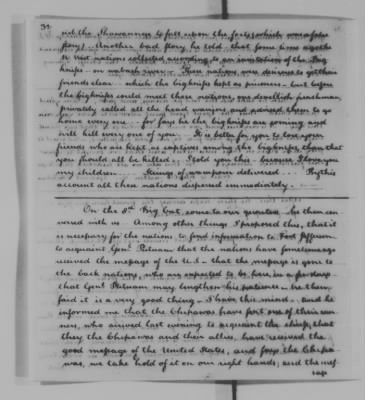 32
and the Shawannese to fall upon the forts (which was a false
story). Another bad story he told, that some time ago the
nations collected according to an invitation of the Big
knifes - on Wabash river - These nations were desirous to get their
friends clear which the bigknifes kept as prisoners - but before
the bigknifes could meet these nations, one devilish frenchman,
privately called all the head warriors and advised them to go
home every one - for says he the bigknifes are coming and
will kill every one of you. It is better for you to lose your
friends who are kept as captives among the bigknifes, than that
you should all be killed. I told you this - because I love you
my children. Strings of wampum delivered. By this
account all these nations dispersed immediately.
On the 8th Big Cat, came to our quarter - he then con
versed with us - Among other things I proposed this, that it
is necessary for the nations to send information to Fort Jefferson
to acquaint Genl. Putnam, that the nations have
received the message of the U.S. - that the message is gone to
the back nations, who are expected to be here in a few days
that Genl Putnam may lengthen his patience - he then
said it is a very good thing - I have this mind - and he
informed me that the Chepawas have sent one of their run-
ners, who arrived last evening to acquaint the chiefs, that
they the Chepawas and their allies, have received the
good message of the United States, and says the Chepa-
was, we take hold of it on our right hands, and the mes
sage